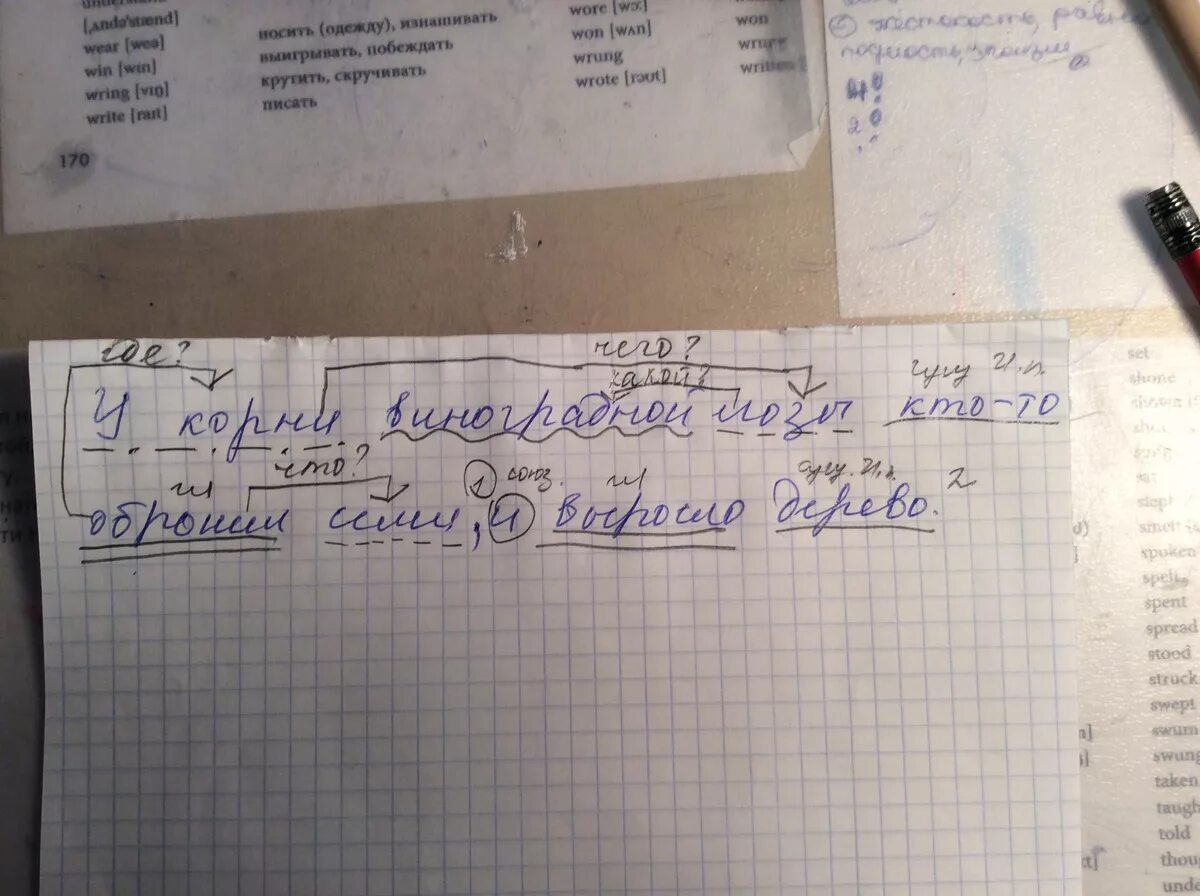 [ˌʌndə'stænd]
wear [weə] носить (одежду), изнашивать wore [wɔ:]
win [wɪn] выигрывать, побеждать won [wʌn] won
wring [vɪŋ] крутить, скручивать wrung
write [raɪt] писать wrote [rəʊt] written
170
где? чего?
какой? сущ И.п.
У корни виноградной лозы кто-то
что?
гл 1 союз. гл сущ. И.п. 2
обронил семя, и выросло дерево.
set
shone
smell
spoken
spelt
spent
spread
stood
struck
swept
swum
swung
taken
taught
told